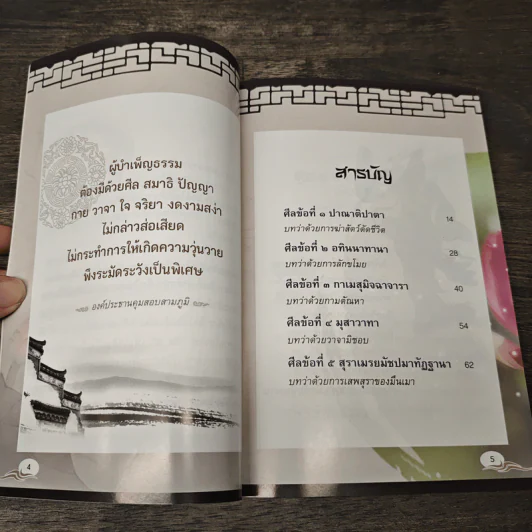 ผู้บำเพ็ญธรรม
ต้องมีด้วยศีล สมาธิ ปัญญา
กาย วาจา ใจ จริยา งดงามสง่า
ไม่กล่าวส่อเสียด
ไม่กระทำการให้เกิดความวุ่นวาย
พึงระมัดระวังเป็นพิเศษ
องค์ประธานคุมสอบสามภูมิ
4
สารบัญ
ศีลข้อที่ ๑ ปาณาติปาตา 14
บทว่าด้วยการฆ่าสัตว์ตัดชีวิต
ศีลข้อที่ ๒ อทินนาทานา 28
บทว่าด้วยการลักขโมย
ศีลข้อที่ ๓ กาเมสุมิจฉาจารา 40
บทว่าด้วยกามตัณหา
ศีลข้อที่ ๔ มุสาวาทา 54
บทว่าด้วยวาจามิชอบ
ศีลข้อที่ ๕ สุราเมรยมัชปมาทัฏฐานา 62
บทว่าด้วยการเสพสุราของมึนเมา
5